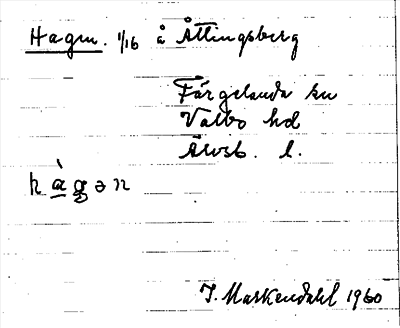 Hagen. 1/16 å Ättingsberg
Färgelanda sn
Valbo hd
Älvsb. l.
hàgən
J. Markendahl 1960